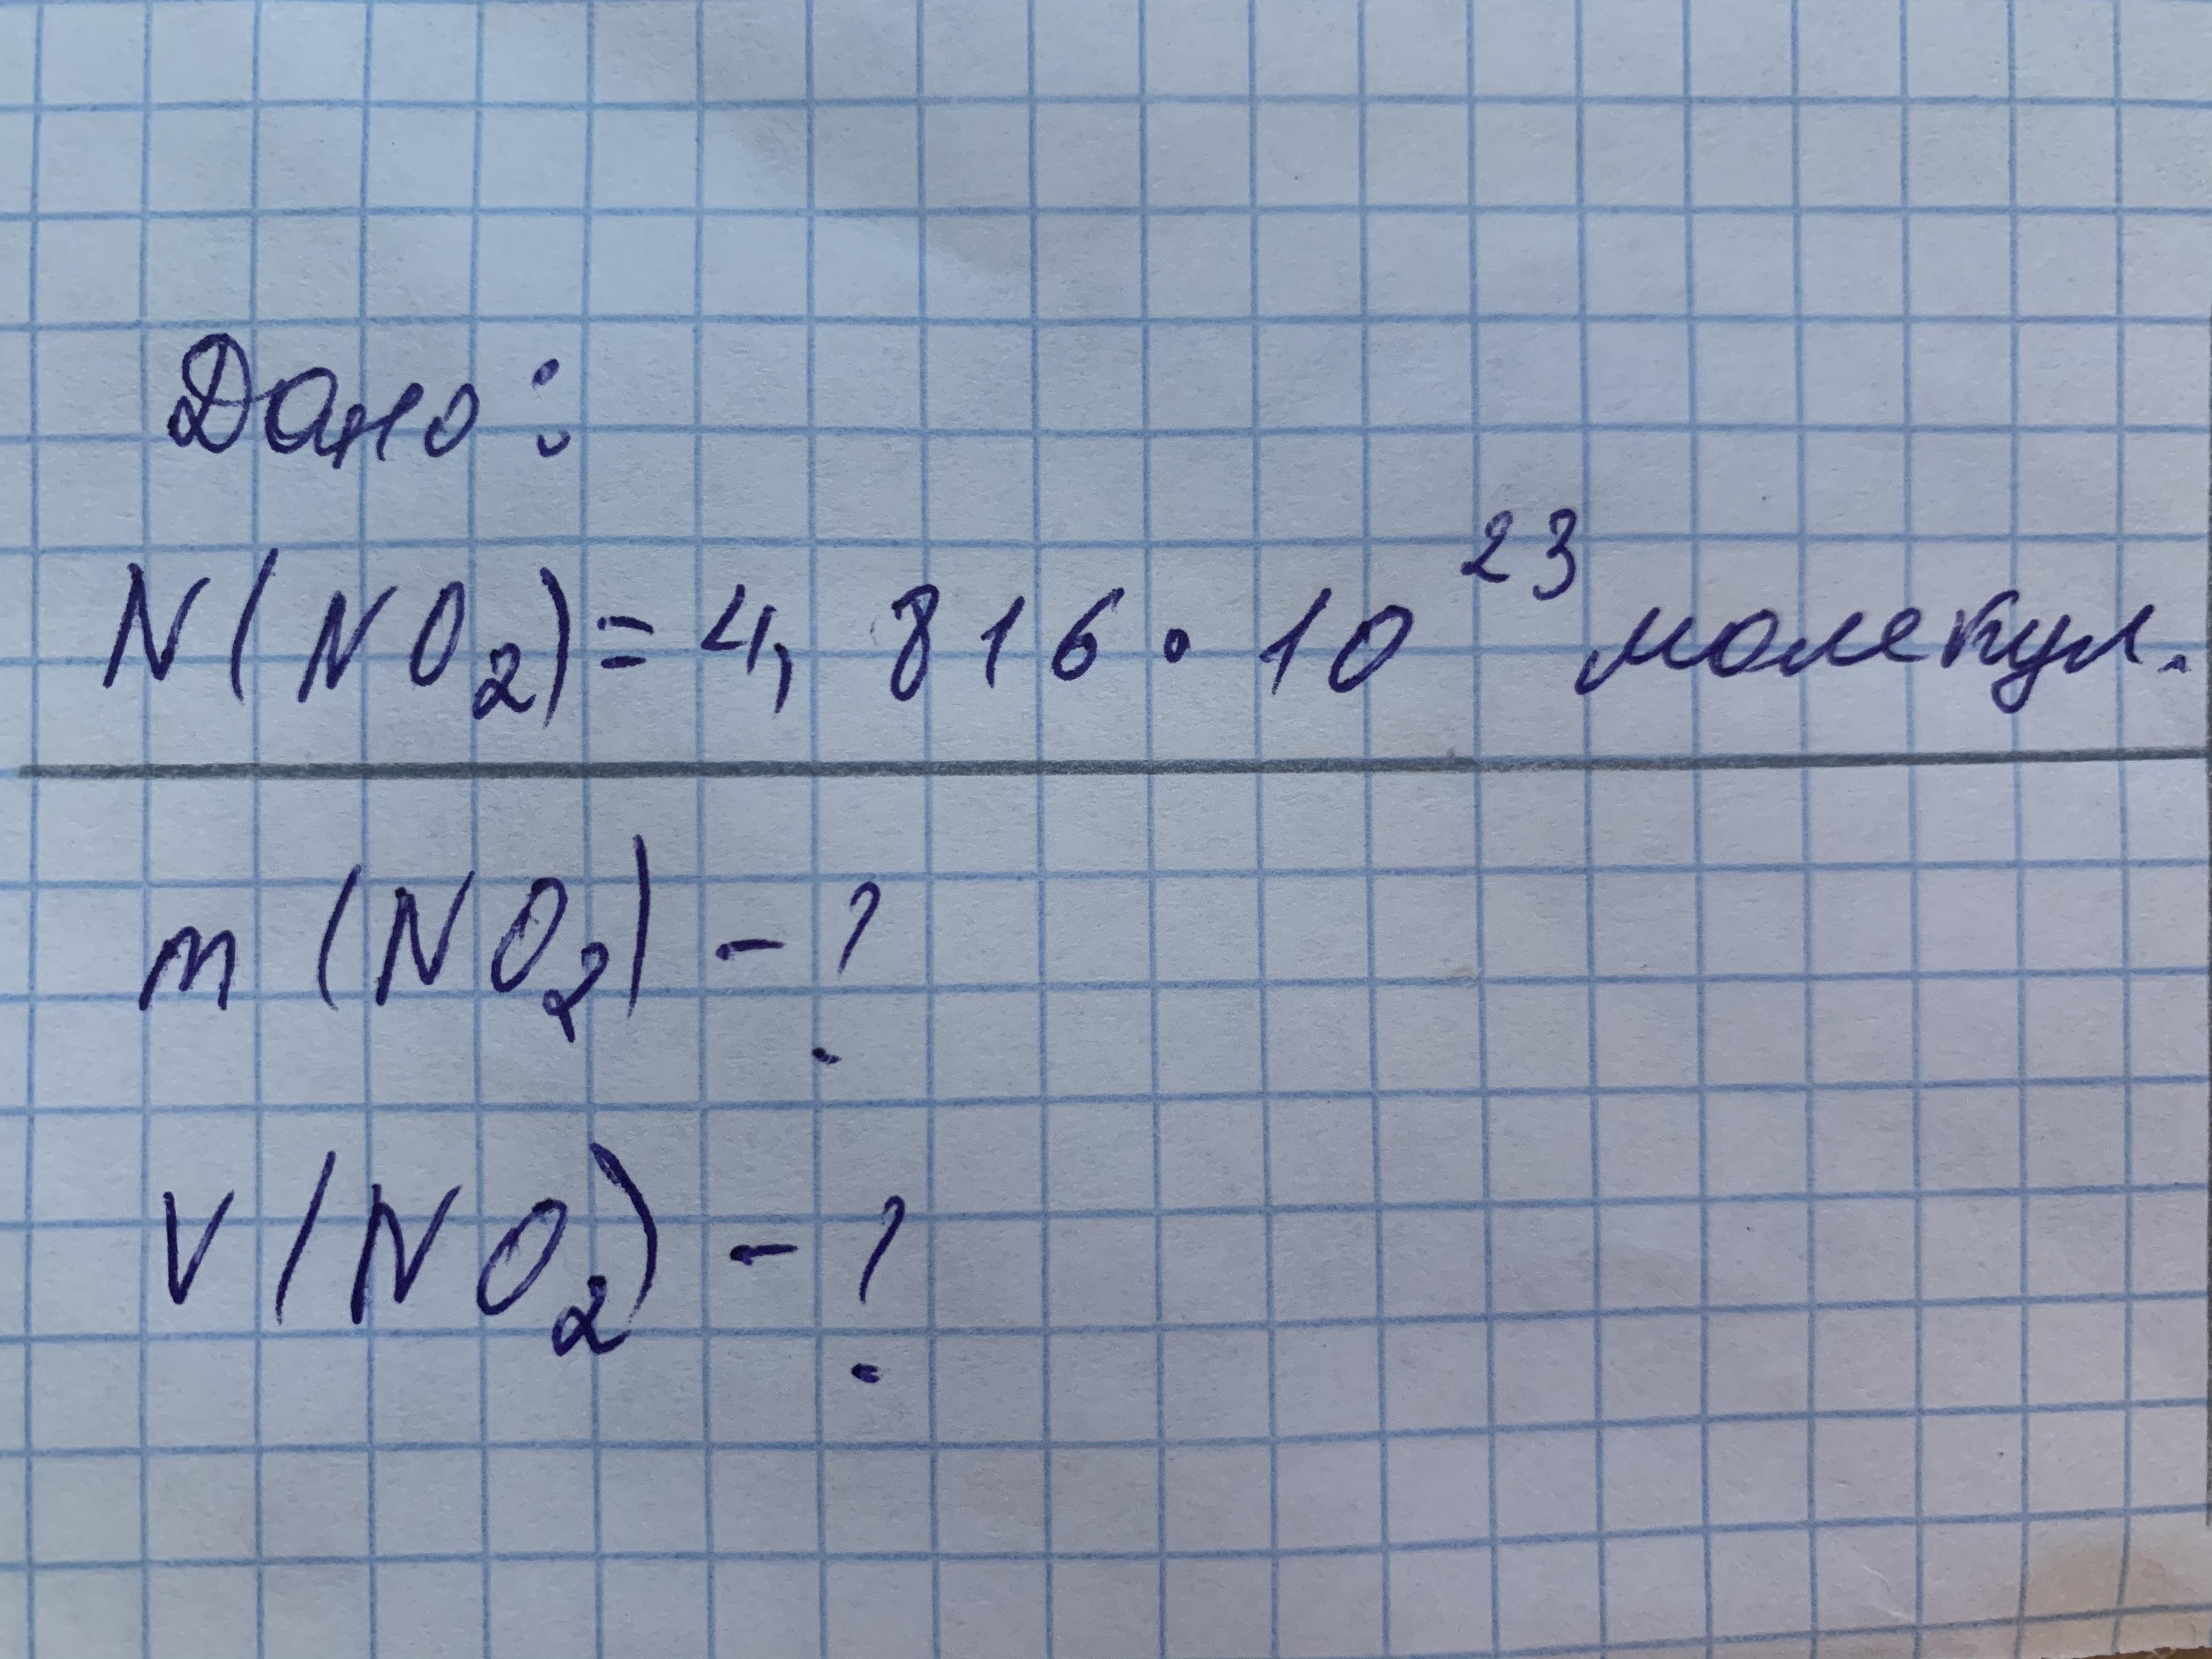 Дано:
N(NO₂)=4,816·10²³ молекул.
m (NO₂) - ?
V(NO₂) - ?